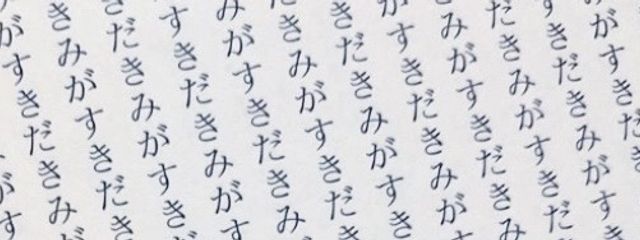 がすきだき
すきだきみがす
だきみがすきだ
きみがすきだきみ
がすきだきみが
きだきみがすき
きみがすきだき
みがすきだきみ
すきだきみがす
きだきみがすきだ
きみがすきだき
がすきだきみが
がす